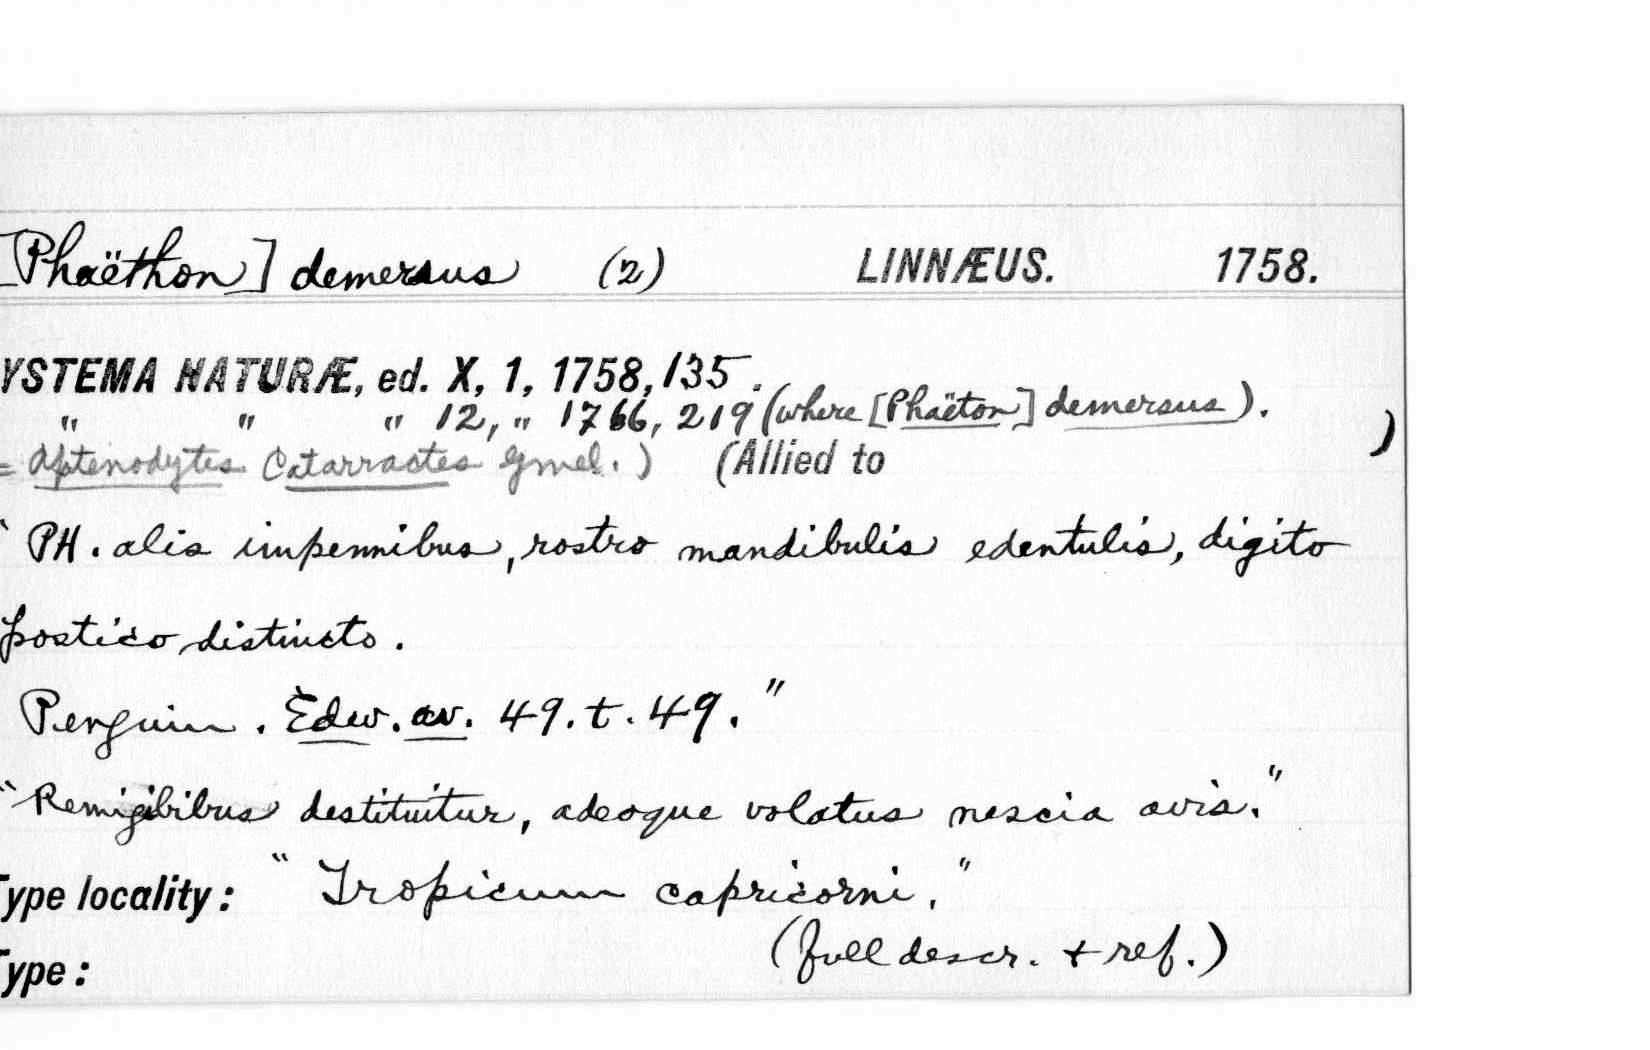 [Phaëthon] demersus (2) LINNÆUS. 1758.
YSTEMA NATURÆ, ed. X, 1, 1758, 135.
" " " 12, " 1766, 219 (where [Phaëton] demersus).
= Aptenodytes Catarractes Gmel.) (Allied to )
" PH. alis impennibus, rostro mandibulis edentulis, digito
postico distincto.
Penguin. Edw. av. 49. t. 49."
"Remigibibus destituitur, adeoque volatus nescia avis."
Type locality: "Tropicum capricorni."
(full descr. + ref.)
Type: